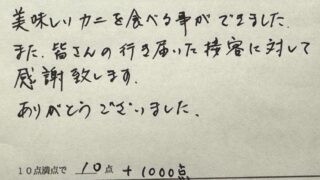 美味しいカニを食べる事ができました。
また、皆さんの行き届いた接客に対して
感謝致します。
ありがとうございました。
10点満点で 10点 + 1000点